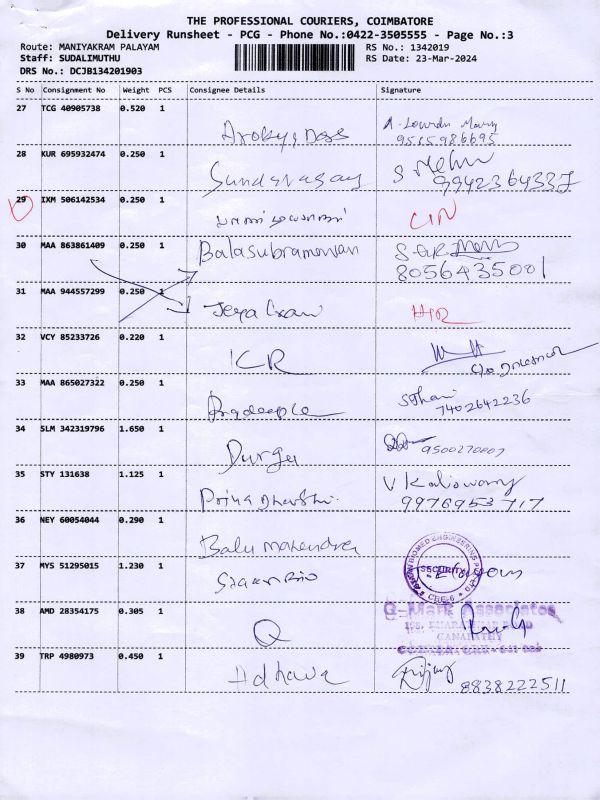 THE PROFESSIONAL COURIERS, COIMBATORE
Delivery Runsheet - PCG - Phone No.:0422-3505555 - Page No.:3
Route: MANIYAKRAM PALAYAM RS No.: 1342019
Staff: SUDALIMUTHU RS Date: 23-Mar-2024
DRS No.: DCJB134201903
S No Consignment No Weight PCS Consignee Details Signature
27 TCG 40905738 0.520 1
Arokya Dass A. Lourdu Mary
9515986695
28 KUR 695932474 0.250 1
9942364337
29 IXM 506142534 0.250 1
30 MAA 863861409 0.250 1 Balasubramanian
8056435001
31 MAA 944557299 0.250 1
Jeya
32 VCY 85233726 0.220 1
KR
33 MAA 865027322 0.250 1
Pradeep 7402642236
34 SLM 342319796 1.650 1
Durga 9500270007
35 STY 131638 1.125 1 V Kaliswary
Priya Dharshi. 9976953717
36 NEY 60054044 0.290 1
Balu Mahendra
37 MYS 51295015 1.230 1 SECURITY
CBE-6
38 AMD 28354175 0.305 1 G-Mark Associates
Q GANAPATHY
39 TRP 4980973 0.450 1
Adhava 8838222511